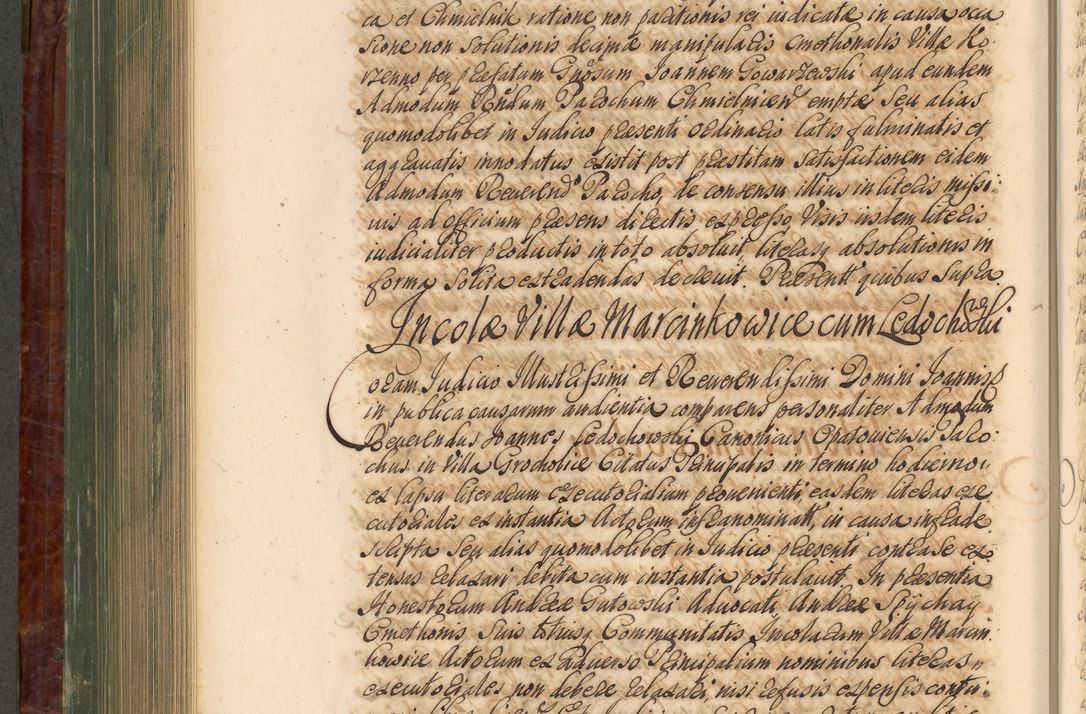 ca et Chmielnik ratione non paritionis rei iudicatæ in causa occa
sione non solutionis decimæ manipularis cmethonalis Villæ Ko-
rzenno per præfatum Gnosum Joannem Gowarzewski apud eundem
Admodum Rndum Parochum Chmielnicen emptæ seu alias
quomodolibet in Judicio præsenti ordinario latis fulminatis et
aggravatis innodatus existit post præstitam satisfactionem eidem
Admodum Reverendo Parocho, de consensu illius in literis missi-
uis ad officium præsens directis expresso Visis iisdem literis
iudicialiter productis in toto absoluit, literasq absolutionis in
forma solita extradendas decreuit. Præsentt quibus supra.
Incolæ Villæ Marcinkowice cum Ledochowski
Coram Judicio Illustrissimi et Reuerendissimi Domini Joannis
in publica causarum audientia comparens personaliter Admodum
Reverendus Joannes Ledochowski Canonicus Opatouiensis Paro-
chus in Villa Grocholice Citatus Principalis in termino hodierno
ex lapsu literarum executorialium proueniente, easdem literas exe
cutoriales ex instantia Actorum infranominatt, in causa infrade
scripta seu alias quomodolibet in Judicio præsenti contra se ex-
tensas relaxari debita cum instantia postulauit. In præsentia
Honestorum Andreæ Gutowski Aduocati, Andreæ Spÿchay
Cmethonis suis totiusq Communitatis Incolarum Villæ Marcin
kowice Actorum ex aduerso Principalium nominibus literas
executoriales non debere relaxari, nisi refusis expensis contu-